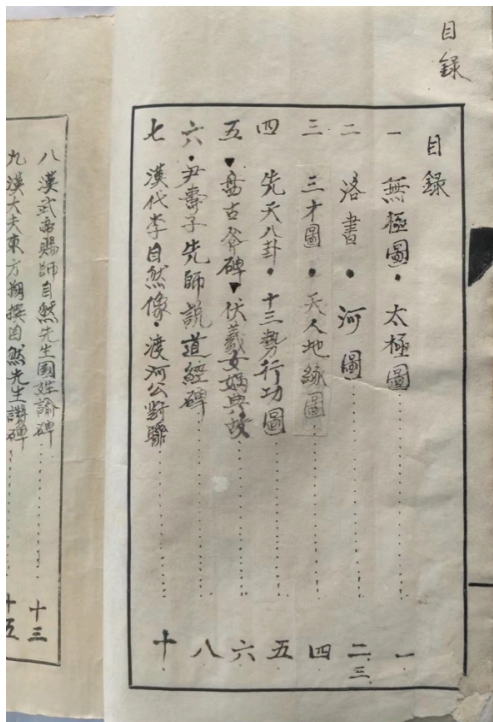 目錄
目錄
一 無極圖·太極圖……一
二 洛書·河圖……二三
三 三才圖·天人地緣圖……四
四 先天八卦·十三勢行功圖……五
五 盤古爷碑 伏羲女媧典故……六
六 尹壽子先師說道經碑……八
七 漢代李自然像·渡河公對聯……十
八 漢武帝賜師自然先生國姓諭碑……十三
九 漢大夫東方朔撰自然先生讃碑……十五